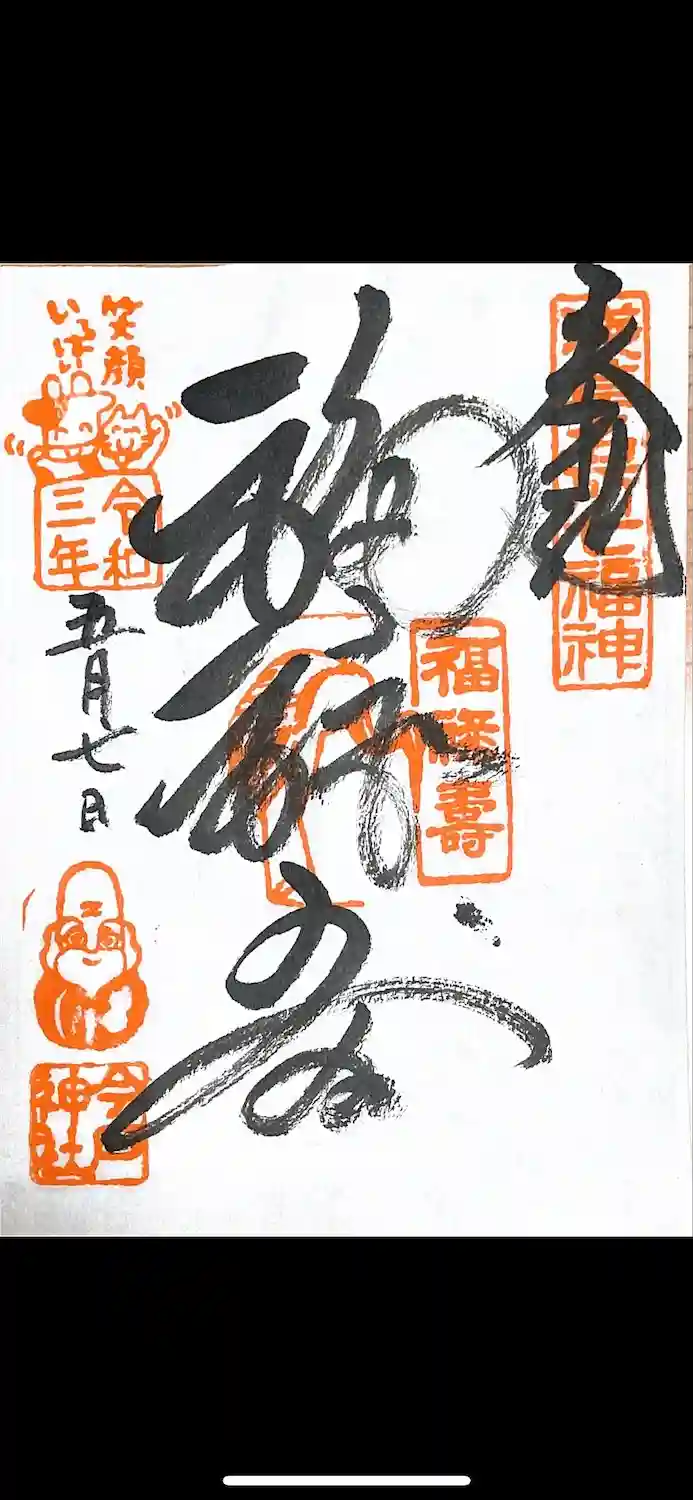 奉拝
福神
福禄壽
福禄寿
笑顔
いっぱい
令和
三年
五月七日
今戸
神社